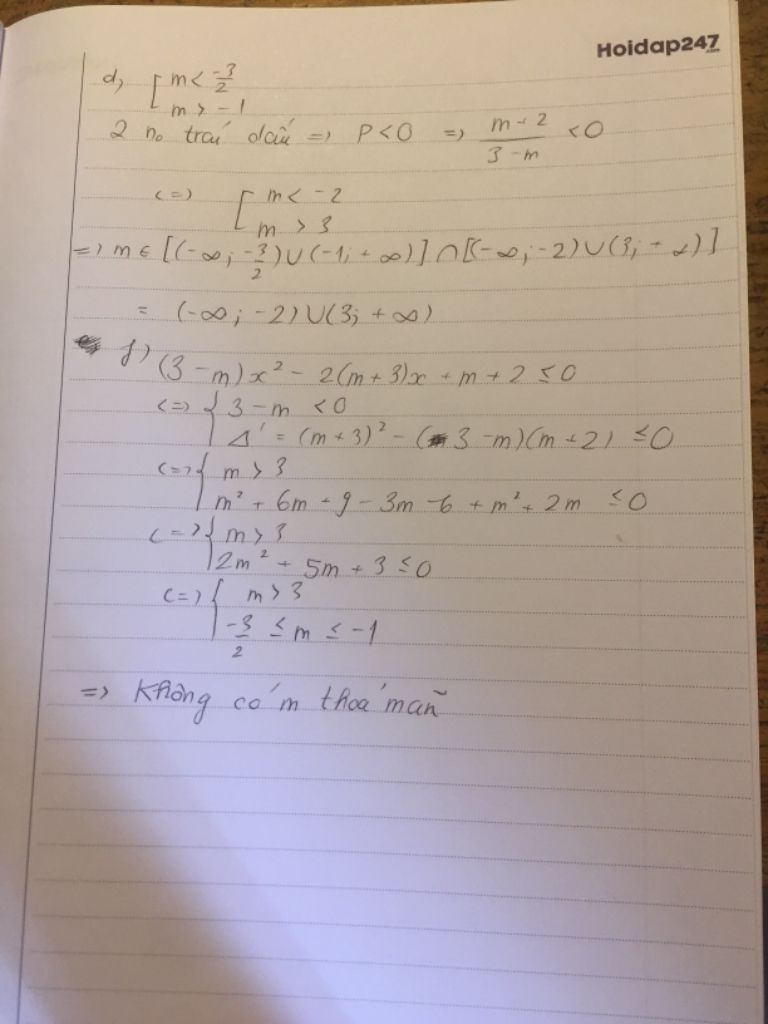 Hoidap247.com
d, [ m < -3/2
m > -1
2 no trái dấu => P < 0 => m+2/3-m < 0
<=> [ m < -2
m > 3
=> m ∈ [(-∞; -3/2) ∪ (-1; +∞)] ∩ [(-∞; -2) ∪ (3; +∞)]
= (-∞; -2) ∪ (3; +∞)
f) (3-m)x² - 2(m+3)x + m + 2 ≤ 0
<=> { 3-m < 0
Δ' = (m+3)² - (3-m)(m+2) ≤ 0
<=> { m > 3
m² + 6m + 9 - 3m - 6 + m² + 2m ≤ 0
<=> { m > 3
2m² + 5m + 3 ≤ 0
<=> { m > 3
-3/2 ≤ m ≤ -1
=> Không có m thoả mãn